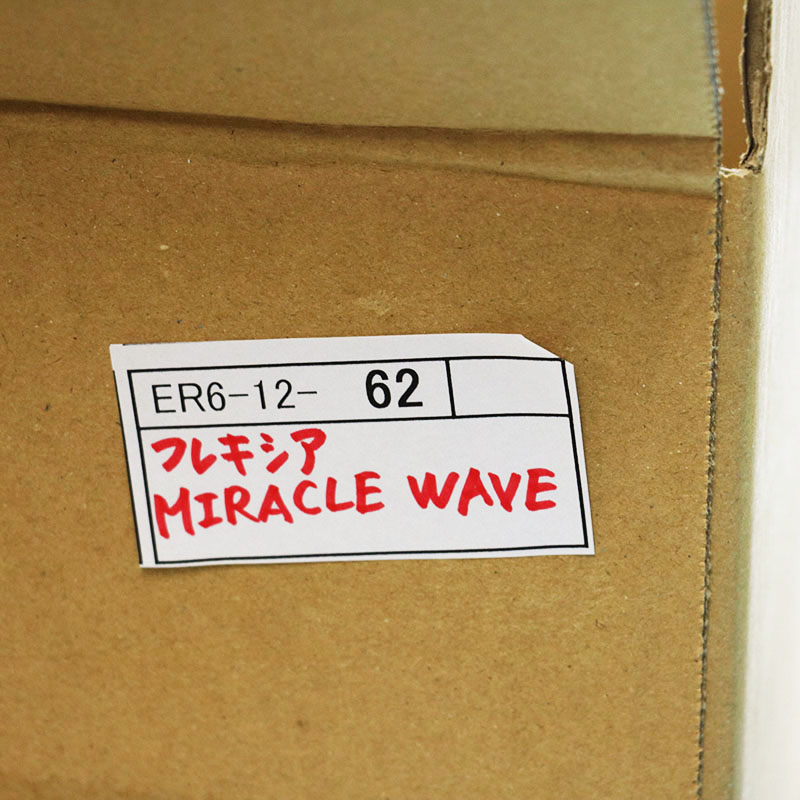 ER6-12- 62
フレキシア
MIRACLE WAVE